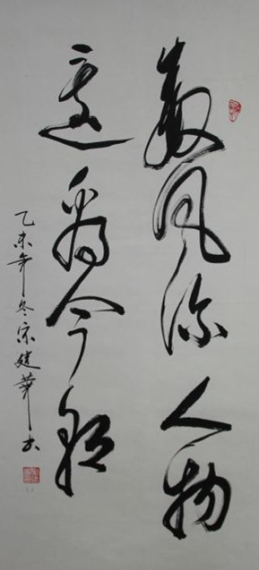 数风流人物
还看今朝
乙未年冬宋建華书